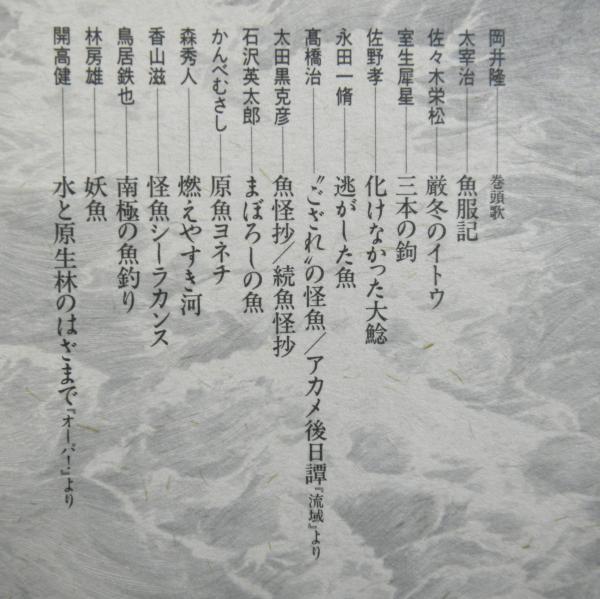 岡井隆——巻頭歌
太宰治——魚服記
佐々木栄松——厳冬のイトウ
室生犀星——三本の鉤
佐野孝——化けなかった大鯰
永田一脩——逃がした魚
髙橋治——〝ござれ〟の怪魚/アカメ後日譚『流域』より
太田黒克彦——魚怪抄/続魚怪抄
石沢英太郎——まぼろしの魚
かんべむさし——原魚ヨネチ
森秀人——燃えやすき河
香山滋——怪魚シーラカンス
鳥居鉄也——南極の魚釣り
林房雄——妖魚
開高健——水と原生林のはざまで『オーパ!』より